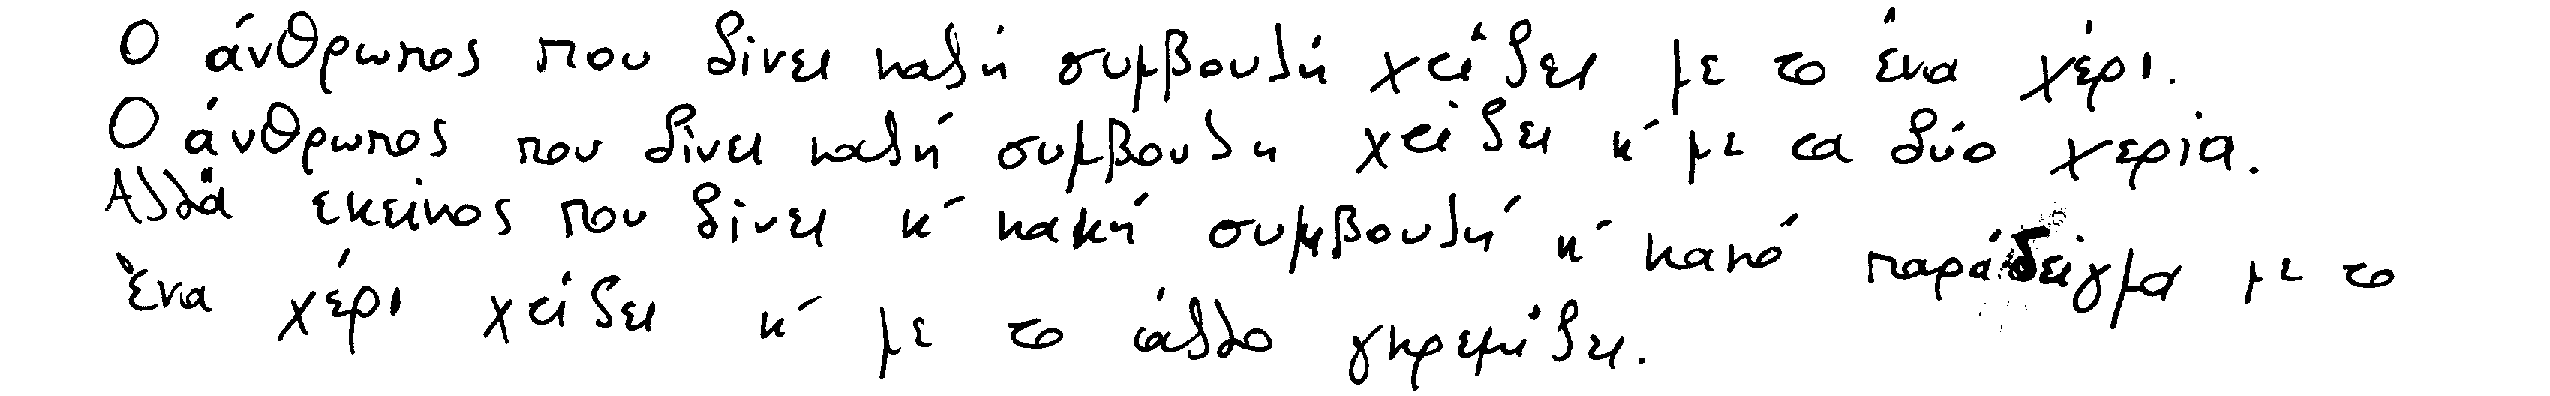 Ο άνθρωπος που δίνει καλή συμβουλή χτίζει με το ένα χέρι.
Ο άνθρωπος που δίνει καλή συμβουλη χτίζει κ΄ με τα δύο χερια.
Αλλά εκείνος που δίνει κ΄ κακή συμβουλή κ΄ κακό παράδειγμα με το
ένα χέρι χτίζει κ΄ με το άλλο γκρεμίζει.